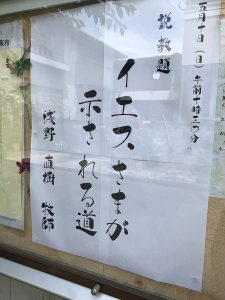 五月十日（日）午前十時三〇分
説教題
イエスさまが
示される道
浅野 直樹 牧師
案内